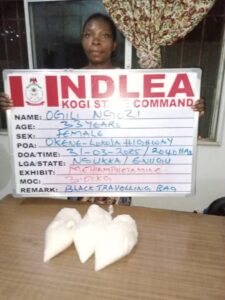 NDLEA
KOGI STATE COMMAND
NAME: OGILI NGOZI
AGE: 33 YEARS
SEX: FEMALE
POA: OKENE-LOKOJA HIGHWAY
DOA/TIME: 31-03-2025 / 2040HRS
LGA/STATE: NSUKKA/ENUGU
EXHIBIT: METHAMPHETAMINE
MOC:
REMARK: BLACK TRAVELLING BAG